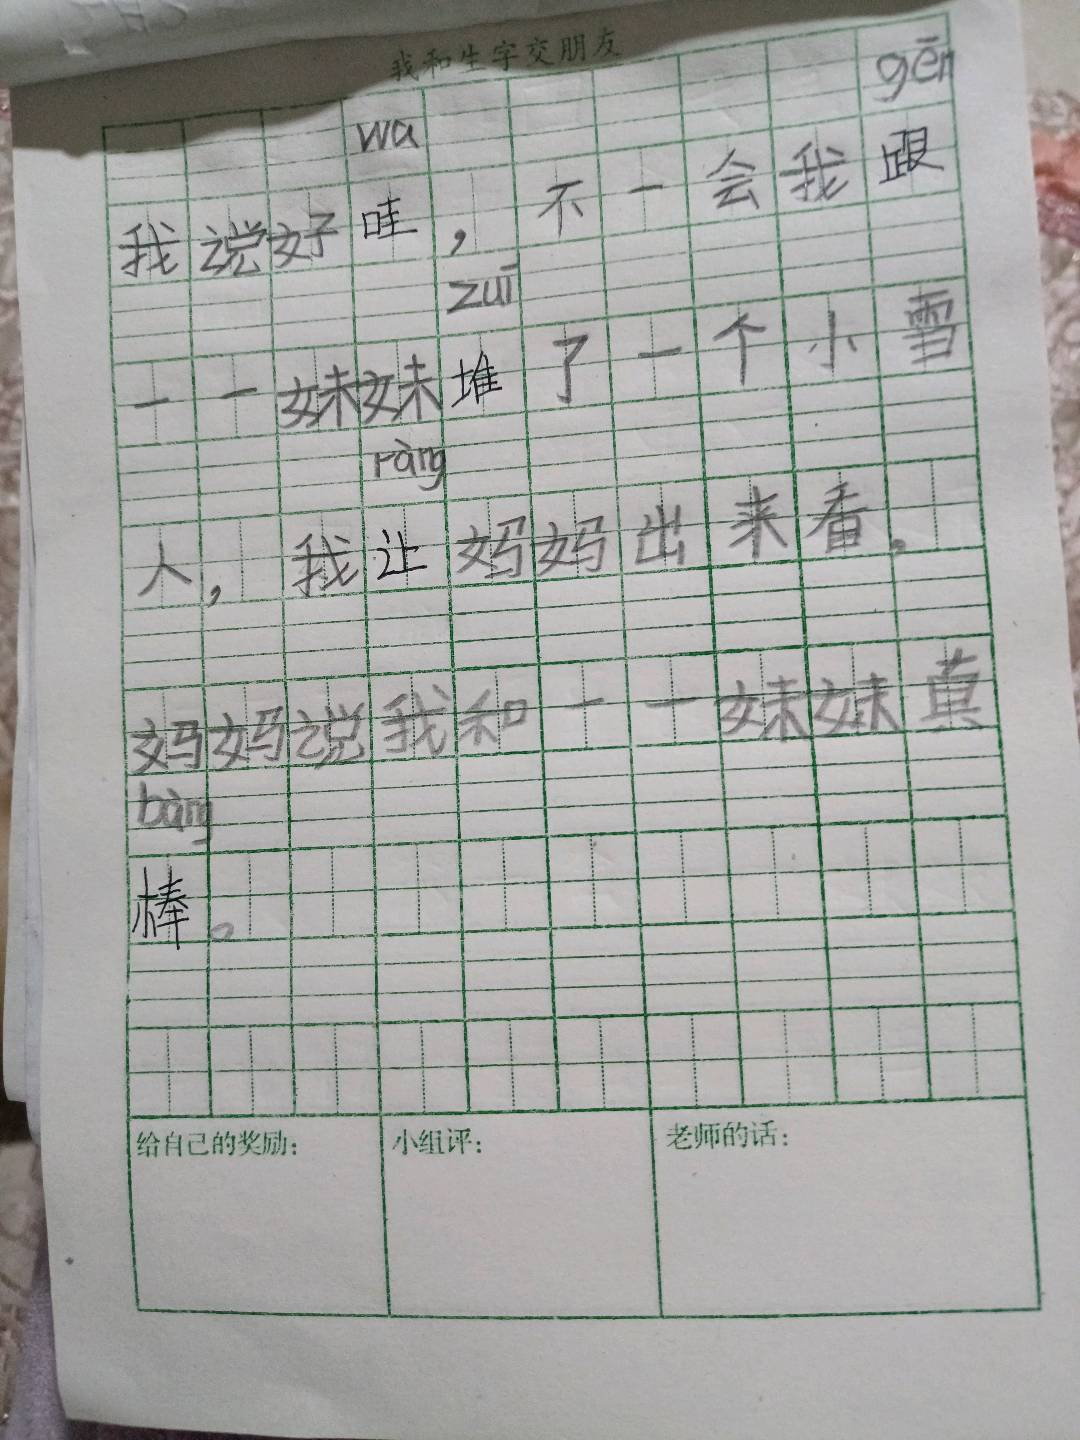 我和生字交朋友
gēn
wa
我说好哇，不一会我跟
zuī
一一妹妹堆了一个小雪
ràng
人，我让妈妈出来看。
妈妈说我和一一妹妹真
bàng
棒。
给自己的奖励：
小组评：
老师的话：